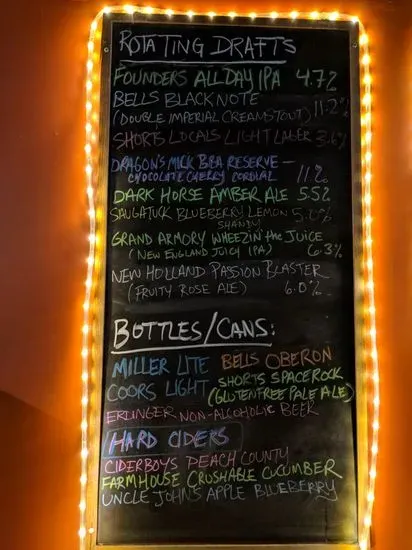 ROTATING DRAFTS
FOUNDERS ALL DAY IPA 4.7%
BELLS BLACK NOTE
(DOUBLE IMPERIAL CREAM STOUT) 11.2%
SHORTS LOCALS LIGHT LAGER
DRAGON'S MILK BBA RESERVE -
CHOCOLATE CHERRY CORDIAL 11%
DARK HORSE AMBER ALE 5.5%
SAUGATUCK BLUEBERRY LEMON 5.0%
SHANDY
GRAND ARMORY WHEEZIN' the JUICE
(NEW ENGLAND JUICY IPA) 6.3%
NEW HOLLAND PASSION BLASTER
(FRUITY ROSE ALE) 6.0%
BOTTLES/CANS:
MILLER LITE BELLS OBERON
COORS LIGHT SHORTS SPACEROCK
(GLUTEN FREE PALE ALE)
ERLINGER NON-ALCOHOLIC BEER
HARD CIDERS
CIDERBOYS PEACH COUNTY
FARMHOUSE CRUSHABLE CUCUMBER
UNCLE JOHN'S APPLE BLUEBERRY